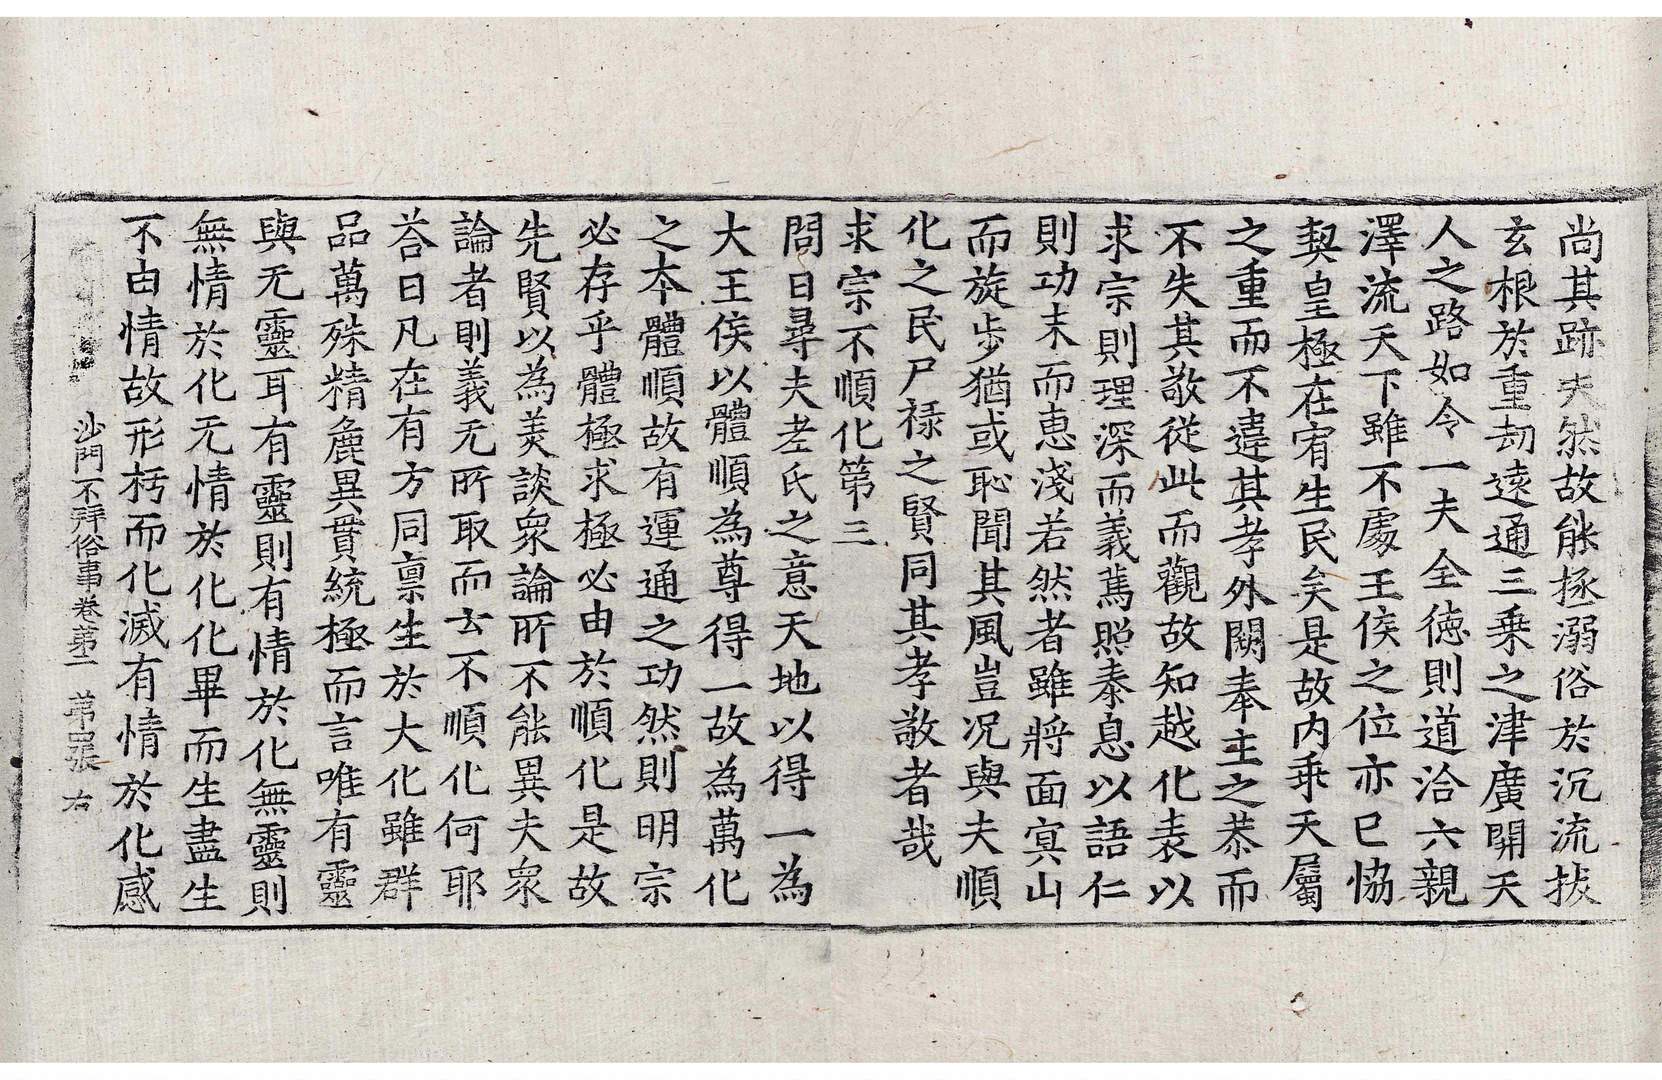 尚其跡夫然故能拯溺俗於沉流拔
玄根於重劫遠通三乗之津廣開天
人之路如令一夫全德則道洽六親
澤流天下雖不處王侯之位亦已恊
契皇極在宥生民矣是故内乖天屬
之重而不違其孝外闕奉主之恭而
不失其敬從此而觀故知越化表以
求宗則理深而義篤照泰息以語仁
則功末而恵淺若然者雖將面㝠山
而旋步猶或恥聞其風豈况與夫順
化之民尸禄之賢同其孝敬者哉
求宗不順化第三
問曰尋夫老氏之意天地以得一為
大王侯以體順為尊得一故為萬化
之本體順故有運通之功然則明宗
必存乎體極求極必由於順化是故
先賢以為美談衆論所不能異夫衆
論者則義无所取而云不順化何耶
荅曰凡在有方同禀生於大化雖群
品萬殊精麁異貫統極而言唯有靈
與无靈耳有靈則有情於化無靈則
無情於化无情於化化畢而生盡生
不由情故形朽而化滅有情於化感
沙門不拜俗事卷第二 第四張 右